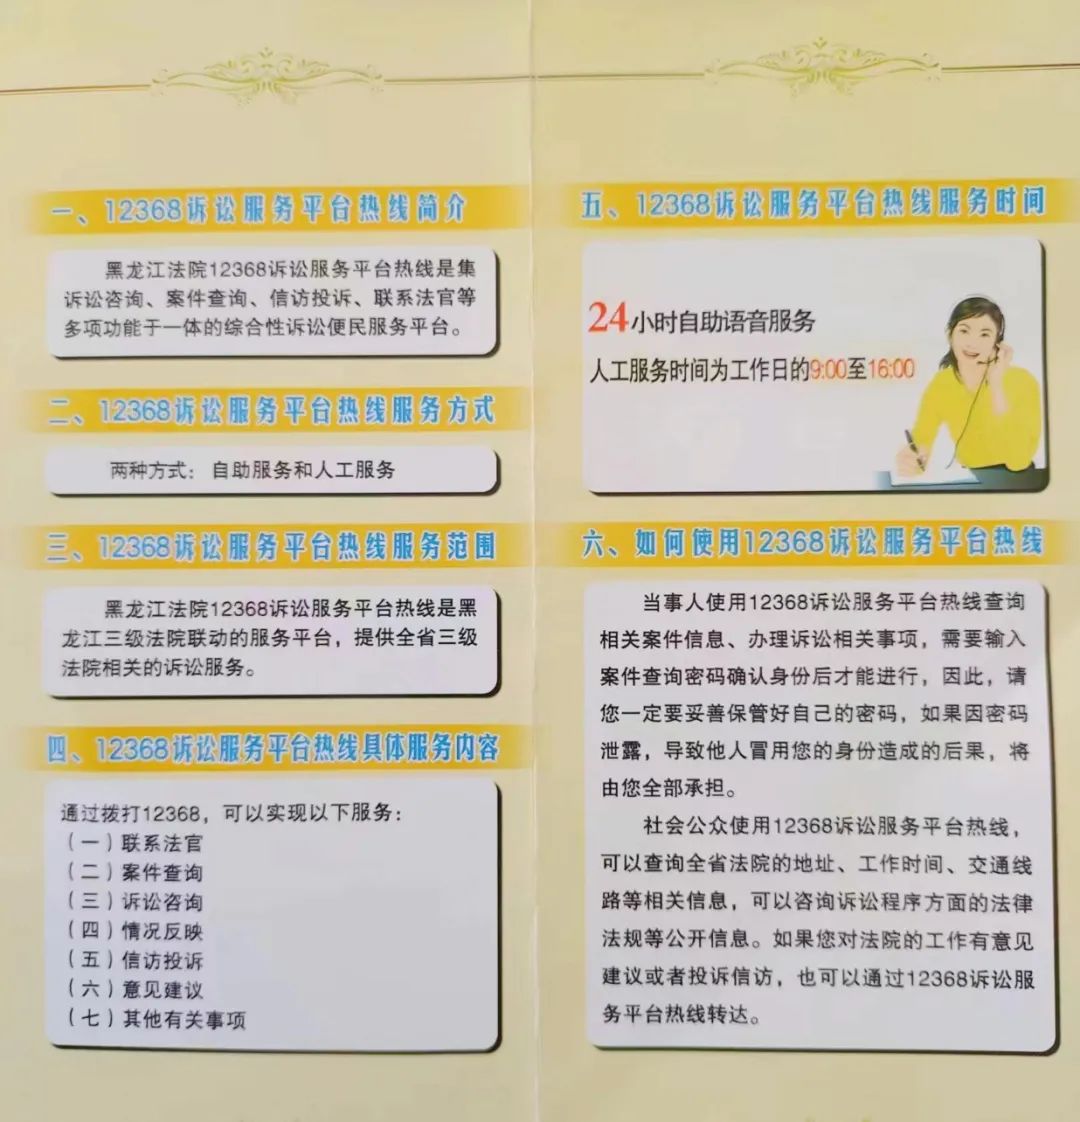 一、12368诉讼服务平台热线简介
黑龙江法院12368诉讼服务平台热线是集
诉讼咨询、案件查询、信访投诉、联系法官等
多项功能于一体的综合性诉讼便民服务平台。
二、12368诉讼服务平台热线服务方式
两种方式：自助服务和人工服务
三、12368诉讼服务平台热线服务范围
黑龙江法院12368诉讼服务平台热线是黑
龙江三级法院联动的服务平台，提供全省三级
法院相关的诉讼服务。
四、12368诉讼服务平台热线具体服务内容
通过拨打12368，可以实现以下服务：
（一）联系法官
（二）案件查询
（三）诉讼咨询
（四）情况反映
（五）信访投诉
（六）意见建议
（七）其他有关事项
五、12368诉讼服务平台热线服务时间
24小时自助语音服务
人工服务时间为工作日的9:00至16:00
六、如何使用12368诉讼服务平台热线
当事人使用12368诉讼服务平台热线查询
相关案件信息、办理诉讼相关事项，需要输入
案件查询密码确认身份后才能进行，因此，请
您一定要妥善保管好自己的密码，如果因密码
泄露，导致他人冒用您的身份造成的后果，将
由您全部承担。
社会公众使用12368诉讼服务平台热线，
可以查询全省法院的地址、工作时间、交通线
路等相关信息，可以咨询诉讼程序方面的法律
法规等公开信息。如果您对法院的工作有意见
建议或者投诉信访，也可以通过12368诉讼服
务平台热线转达。